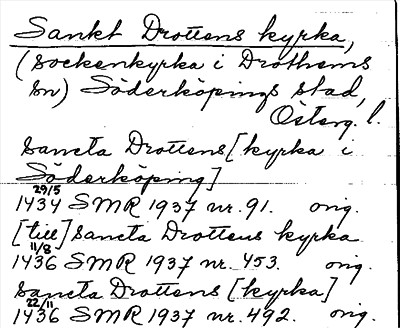 Sankt Drottens kyrka,
(sockenkyrka i Drothems
sn) Söderköpings stad,
Österg. l.
Sancta Drottens [kyrka i
Söderköping]
29/5
1434 SMR 1937 nr. 91. orig.
[till] Sancta Drottens kyrka
11/8
1436 SMR 1937 nr. 453. orig.
Sancta Drottens [kyrka]
22/11
1436 SMR 1937 nr. 492. orig.